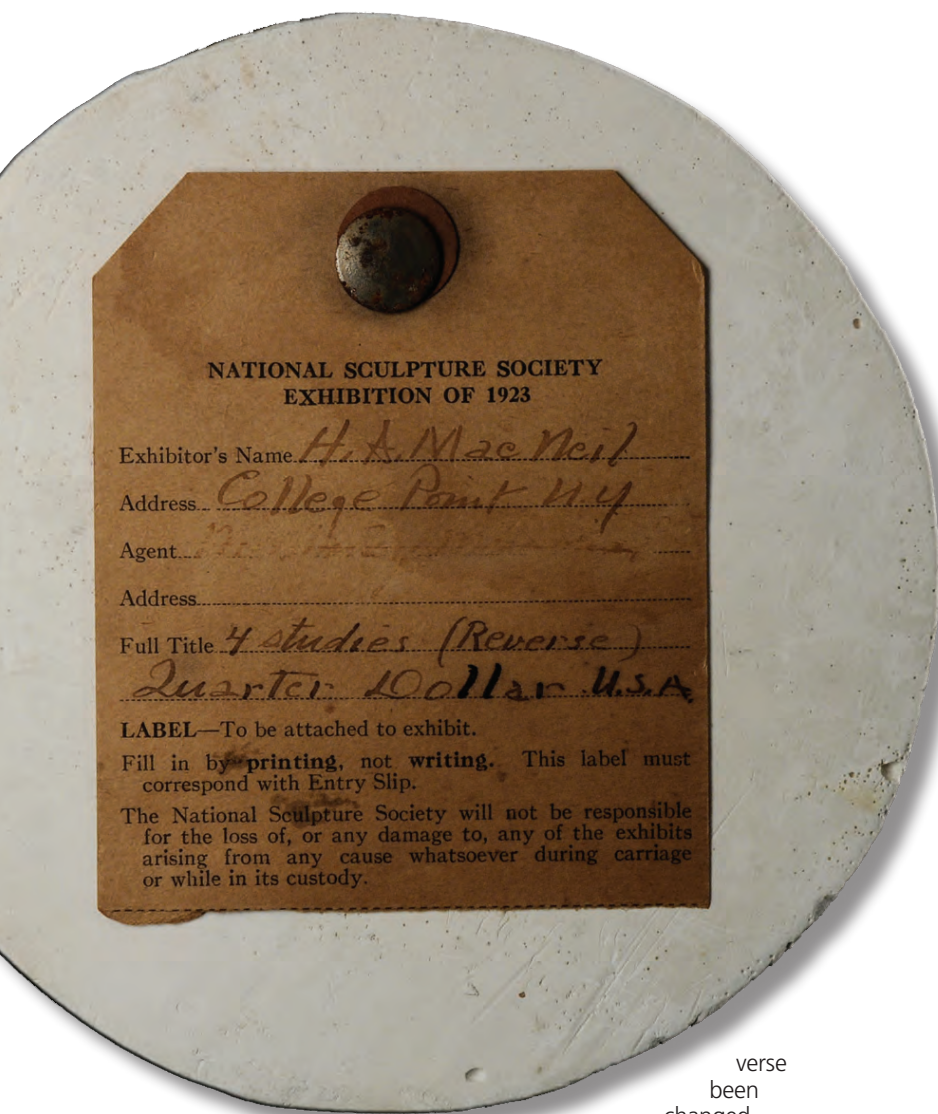 NATIONAL SCULPTURE SOCIETY
EXHIBITION OF 1923
Exhibitor's Name H. A. Mac Neil
Address College Point N y
Agent
Address
Full Title 4 studies (Reverse)
Quarter Dollar U.S.A
LABEL—To be attached to exhibit.
Fill in by printing, not writing. This label must
correspond with Entry Slip.
The National Sculpture Society will not be responsible
for the loss of, or any damage to, any of the exhibits
arising from any cause whatsoever during carriage
or while in its custody.
verse
been
changed